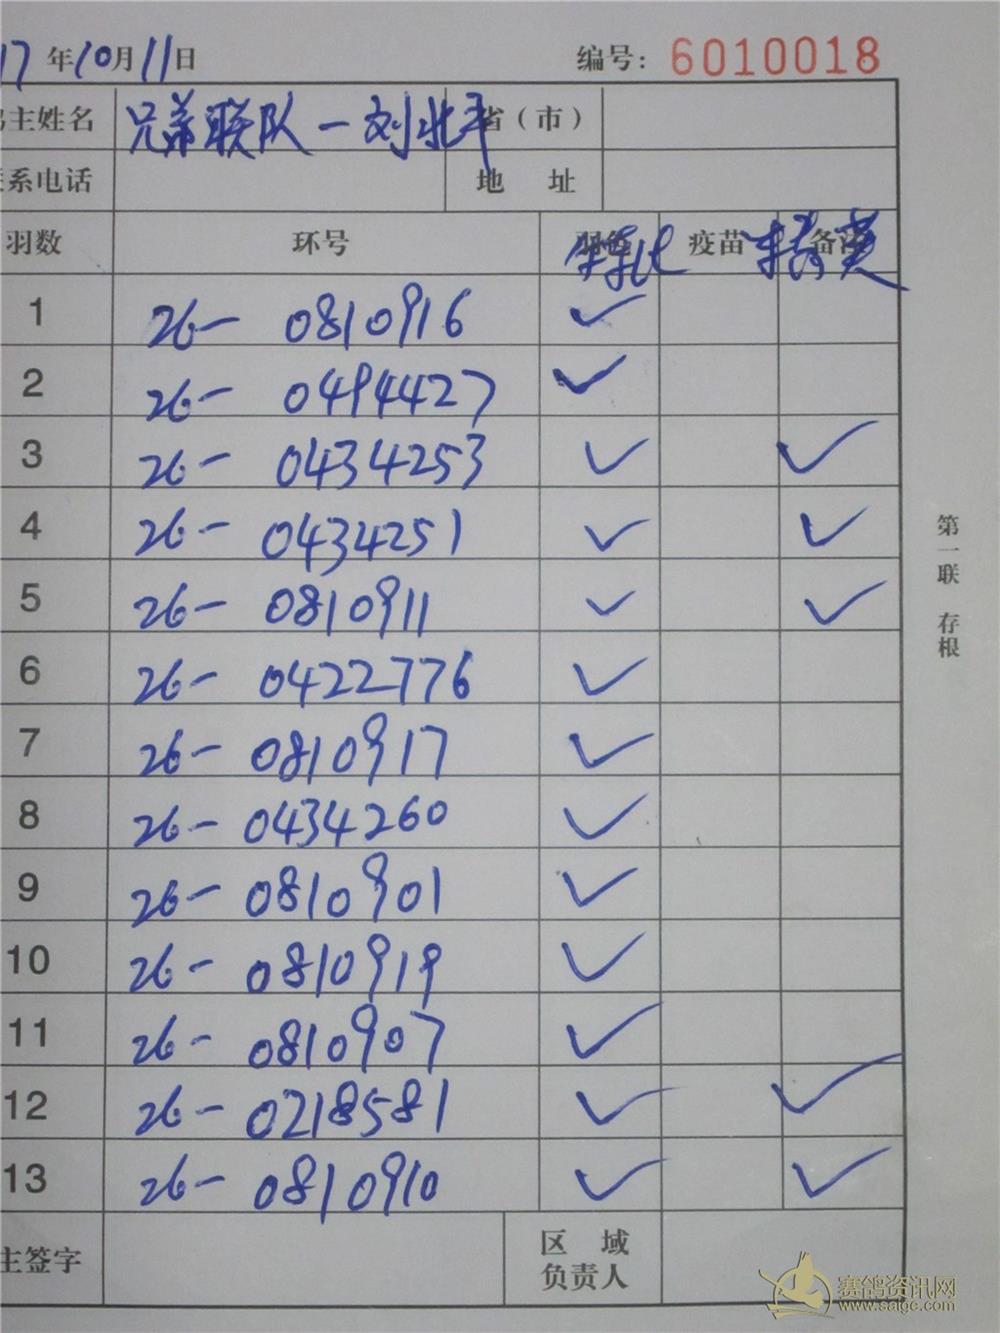 17年10月11日 编号: 6010018
主姓名 兄弟联队一刘北平 省（市）
系电话 地 址
羽数 环号 羽色 疫苗 备注
1 26- 0810916 ✓
2 26- 0494427 ✓
3 26- 0434253 ✓ ✓
4 26- 0434251 ✓ ✓
5 26- 0810911 ✓ ✓
6 26- 0422776 ✓
7 26- 0810917 ✓
8 26- 0434260 ✓
9 26- 0810901 ✓
10 26- 0810919 ✓
11 26- 0810907 ✓
12 26- 0218581 ✓ ✓
13 26- 0810910 ✓ ✓
主签字 区 域
负责人
第一联 存根
赛鸽资讯网
www.saigc.com